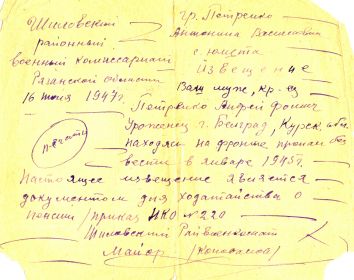 Шиловский
районный
военный комиссариат
Рязанской области
16 июня 1947г.
гр. Петренко
Антонина
с.
Извещение
Ваш муж, кр-ец
Петренко Андрей Фомич
Уроженец г. Белград, Курск.
находясь на фронте пропал без
вести в январе 1945г.
Настоящее извещение является
документом для ходатайства о
пенсии /приказ НКО № 220
печать
Шиловский Райвоенкомат
Майор